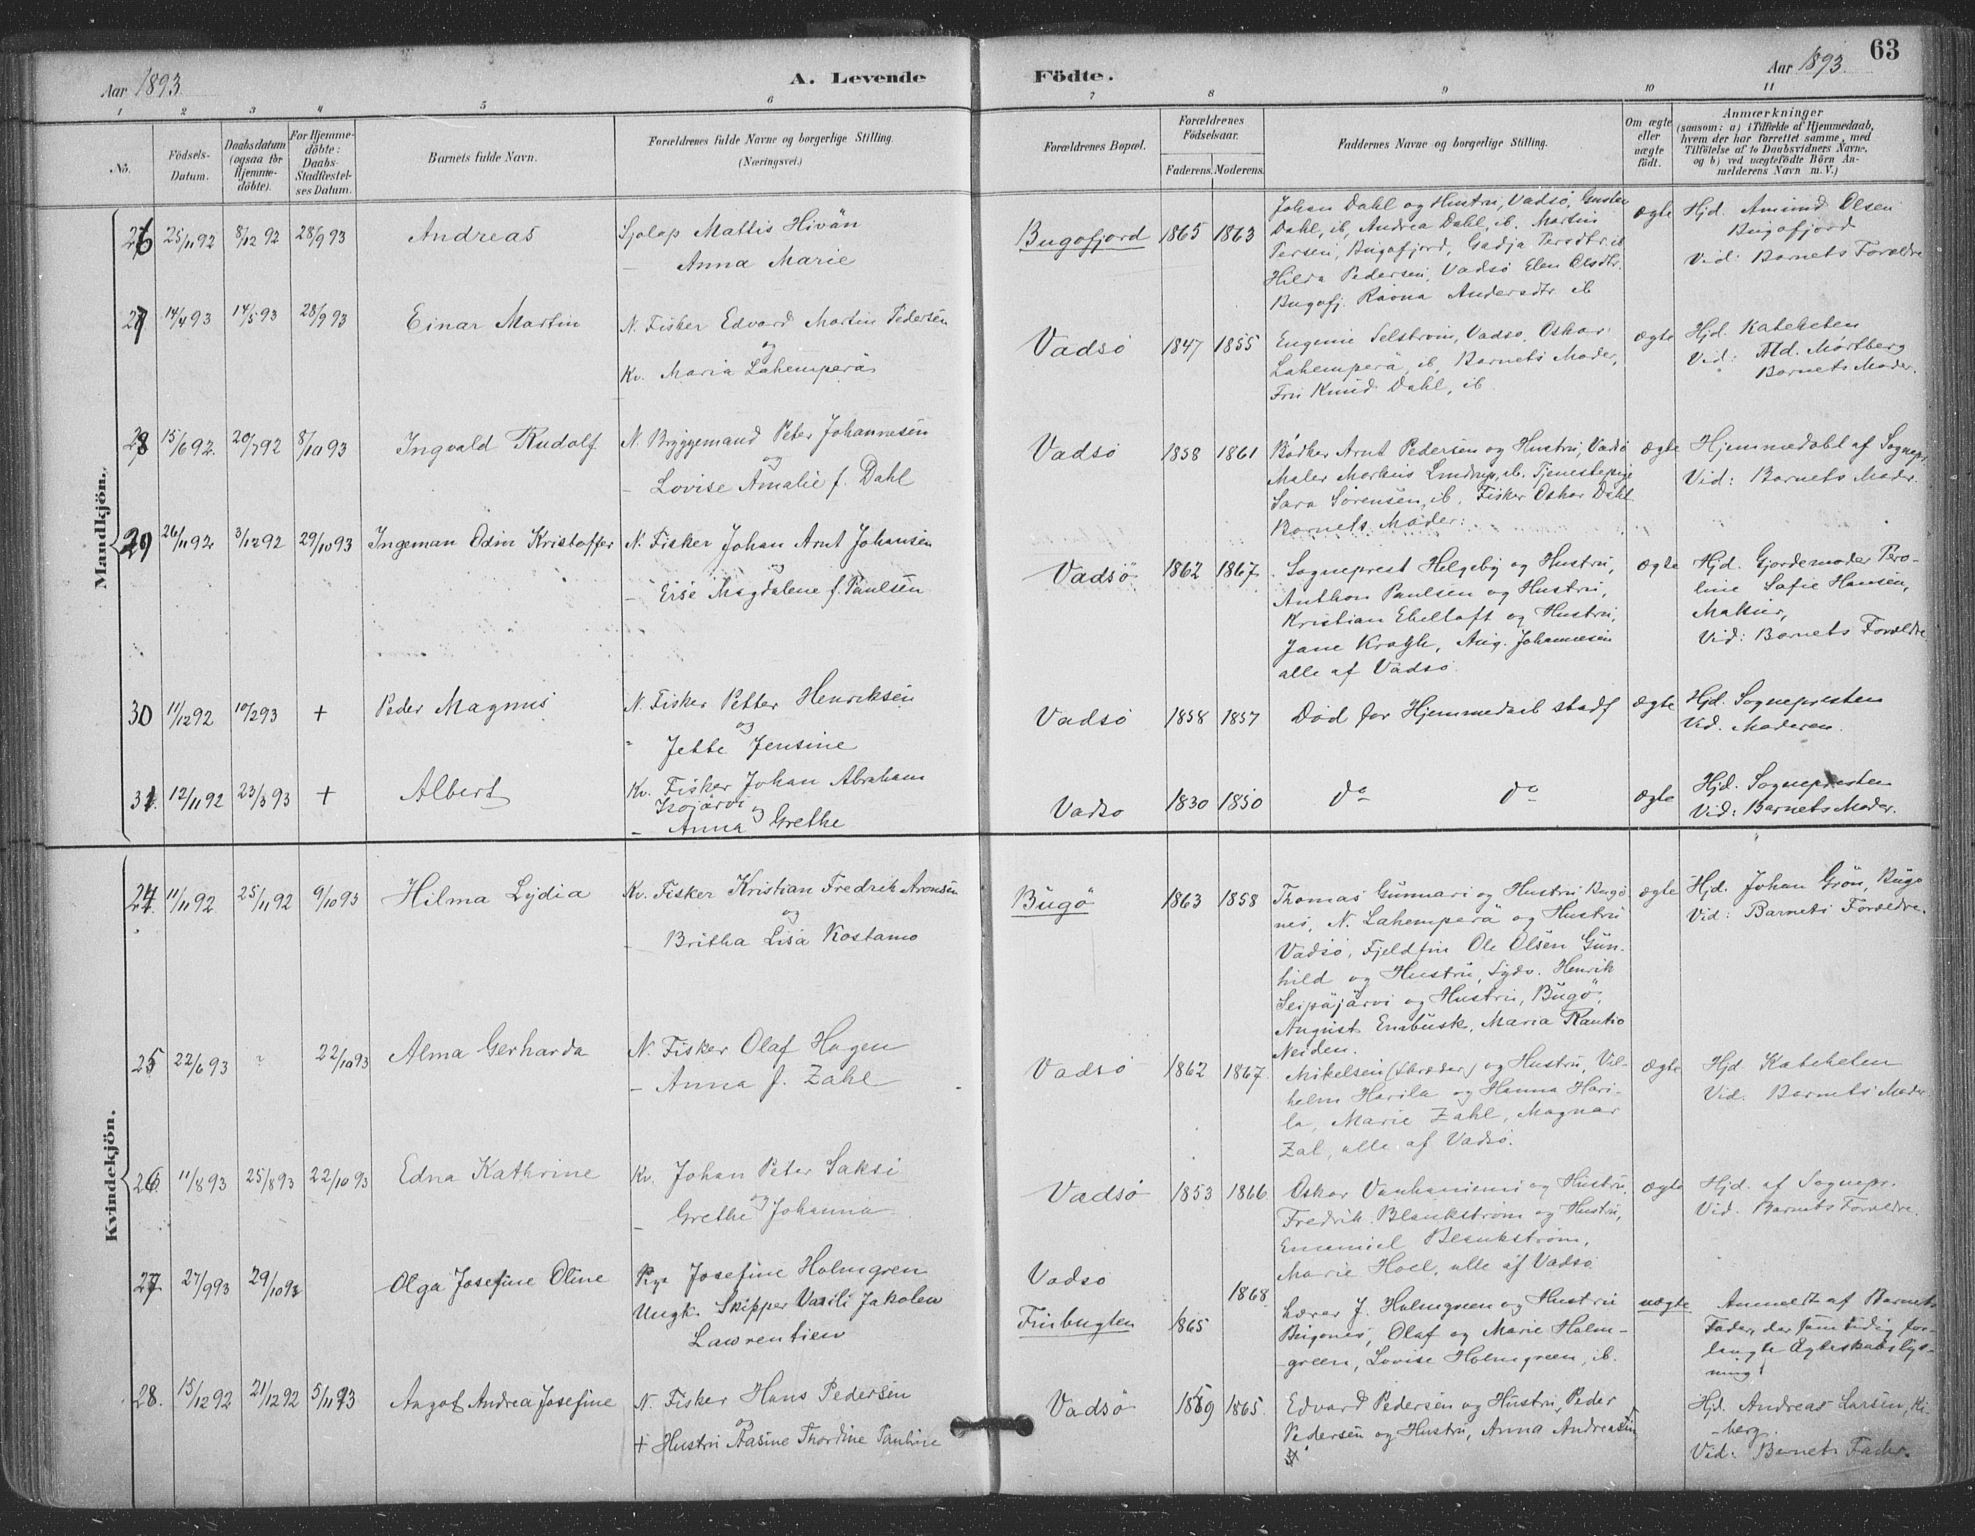 Aar 1893.
A. Levende
Födte.
Aar 1893.
63
1 2 3 4 5 6 7 8 9 10 11
No.
Födsels-
Datum.
Daabsdatum
(ogsaa for
Hjemme-
döbte).
For Hjemme-
döbte:
Daabs-
Stadfæstel-
ses Datum.
Barnets fulde Navn.
Forældrenes fulde Navne og borgerlige Stilling.
(Næringsvei.)
Forældrenes Bopæl.
Forældrenes
Födselsaar.
Faderens. Moderens.
Faddernes Navne og borgerlige Stilling.
Om ægte
eller
uægte
födt.
Anmærkninger
(saasom: a) i Tilfælde af Hjemmedaab,
hvem der har forrettet samme, med
Tilföielse af to Daabsvidners Navne,
og b) ved uægtefödte Börn An-
melderens Navn m. V.)
Mandkjön.
26 25/11 92 8/12 92 28/9 93 Andreas
Sjolap Mattis Hivän
— Anna Marie
Bugøfjord 1865 1863
Johan Dahl og Hustru, Vadsö, Gustav
Dahl, ib, Andrea Dahl, ib. Martin
Persen, Bugöfjord, Gadja Persdtr. ib
Hilda Pedersen, Vadsö Elen Olsdtr.
Bugøfj. Ravna Andersdtr ib
ægte
Hjd. Amund Olsen
Bugøfjord
Vid: Barnets Forældre
27 14/4 93 14/5 93 28/9 93 Einar Martin
N. Fisker Edvard Martin Pedersen
og
Kv. Maria Lahemperä
Vadsö 1847 1855
Eugenie Selstrøm, Vadsö, Oskar
Lahemperä, ib, Barnets Moder,
Fru Knud Dahl, ib.
ægte
Hjd. Kateketen
Vid: Mørtberg
Barnets Moder.
28 15/6 92. 20/7 92 8/10 93 Ingvald Rudolf
N Bryggemand Peter Johannesen
og
— Lovise Amalie f. Dahl
Vadsö 1858 1861
Bødker Arnt Pedersen og Hustru, Vadsö
Maler Markus Lindrup, ib. Tjenestepige
Sara Sørensen, ib, Fisker Oskar Dahl
Barnets Moder.
ægte
Hjemmedøbt af Sognepr.
Vid: Barnets Moder.
29 26/11 92 3/12 92 29/10 93 Ingeman Odin Kristoffer
N. Fisker Johan Arnt Johansen
og
— Magdalene f. Paulsen
Vadsö 1862 1867
Sogneprest Helgeby og Hustru,
Anthon Paulsen og Hustru,
Kristian Ebeltoft og Hustru,
Jane Kragh, Aug. Johannesen
alle af Vadsö
ægte
Hjd. Gjordemoder Pero-
line Sofie Hansen,
Makur,
Vid: Barnets Forældre
30 11/12 92 10/2 93 + Peder Magnus
N. Fisker Petter Henriksen
og
" Jette Jensine
Vadsö 1858 1857
Död før Hjemmedaab stadf
ægte
Hjd. Sognepresten
Vid. Moderen.
31. 12/11 92 23/3 93 + Albert
Kv. Fisker Johan Abraham
Isojärvi og
— Anna Grethe
Vadsö 1830 1850
do do
ægte
Hjd. Sognepresten
Vid: Barnets Moder.
Kvindekjön.
24. 11/11 92 25/11 92 9/10 93 Hilma Lydia
Kv. Fisker Kristian Fredrik Aronsen
og
— Britha Lisa Kostamo
Bugö 1863 1858
Thomas Gunnari og Hustru Bugö
nes, N. Lahemperä og Hustru
Vadsö, Fjeldfin Ole Olsen Gun-
hild og Hustru, Sydv. Henrik
Seipäjärvi og Hustru, Bugö,
August Enbusk, Maria Rautio
Neiden.
ægte
Hjd. Johan Grön, Bugö
Vid: Barnets Forældre.
25 22/6 93 22/10 93 Alma Gerharda
N. Fisker Olaf Hagen
— Anna f. Zahl
Vadsö 1862 1867
Mikelsen (Skræder) og Hustru, Vil-
helm Harila og Hanna Hari-
la, Marie Zahl, Magnar
Zal, alle af Vadsö.
ægte
Hjd Kateketen
Vid. Barnets Moder.
26 11/8 93 25/8 93 22/10 93 Edna Kathrine
Kv. Johan Peter Saksi
og
— Grethe Johanna
Vadsö 1853 1866
Oskar Vanhaniemi og Hustru,
Fredrik Blankstrøm og Hustru,
Emanuel Blankstrøm,
Marie Hoel, alle af Vadsö
ægte
Hjd. af Sognepr.
Vid. Barnets Forældre.
27 27/9 93 29/10 93 Olga Josefine Oline
Pige Josefine Holmgren
Ungk. Skipper Vasili Jakolev
Lawrentiew
Vadsö 1868
Finbugten 1865
Lærer J. Holmgreen og Hustru
Bugønes, Olaf og Marie Holm-
green, Lovise Holmgreen, ib.
uægte
Anmeldt af Barnets
Fader, der samtidig for-
langte Ægteskabslys-
ning!
28. 15/12 92 21/12 92 5/11 93 Aagot Andrea Josefine
N. Fisker Hans Pedersen
og
+ Hustru Aasine Thordine Pauline
Vadsö 1869 1865.
Edvard Pedersen og Hustru, Peder
Pedersen og Hustru, Anna Andreasen
Hjd. Andreas Larsen, Ki-
berg.
Vid: Barnets Fader.